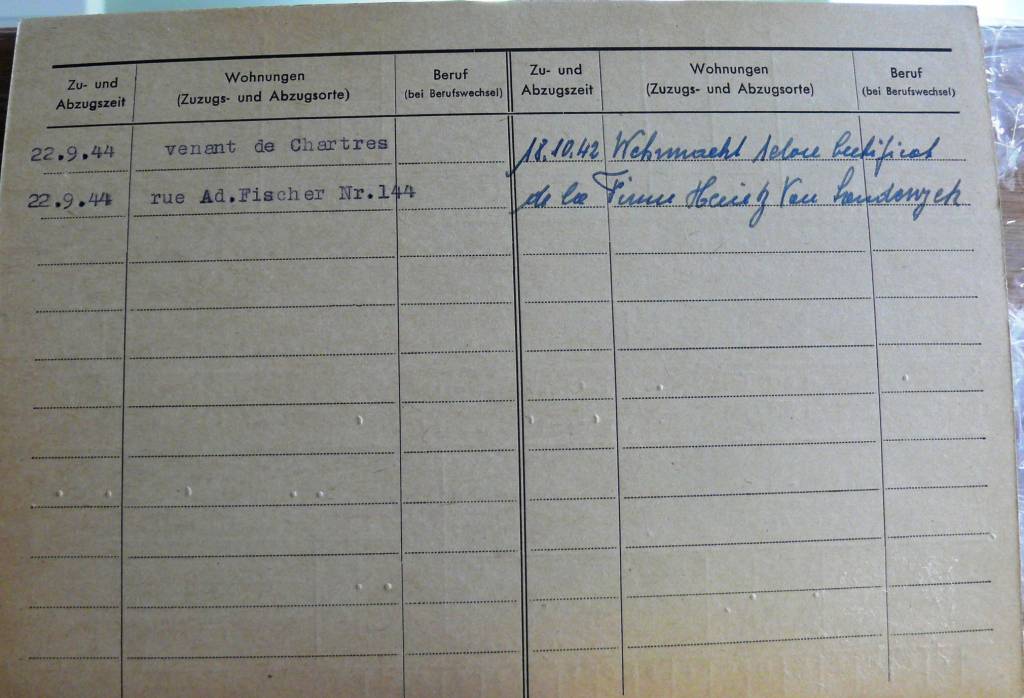 Zu- und Abzugszeit
Wohnungen
(Zuzugs- und Abzugsorte)
Beruf
(bei Berufswechsel)
Zu- und Abzugszeit
Wohnungen
(Zuzugs- und Abzugsorte)
Beruf
(bei Berufswechsel)
22.9.44 venant de Chartres
22.9.44 rue Ad.Fischer Nr.144
18.10.42 Wehrmacht selon Certificat
de la Firma Heinz Van